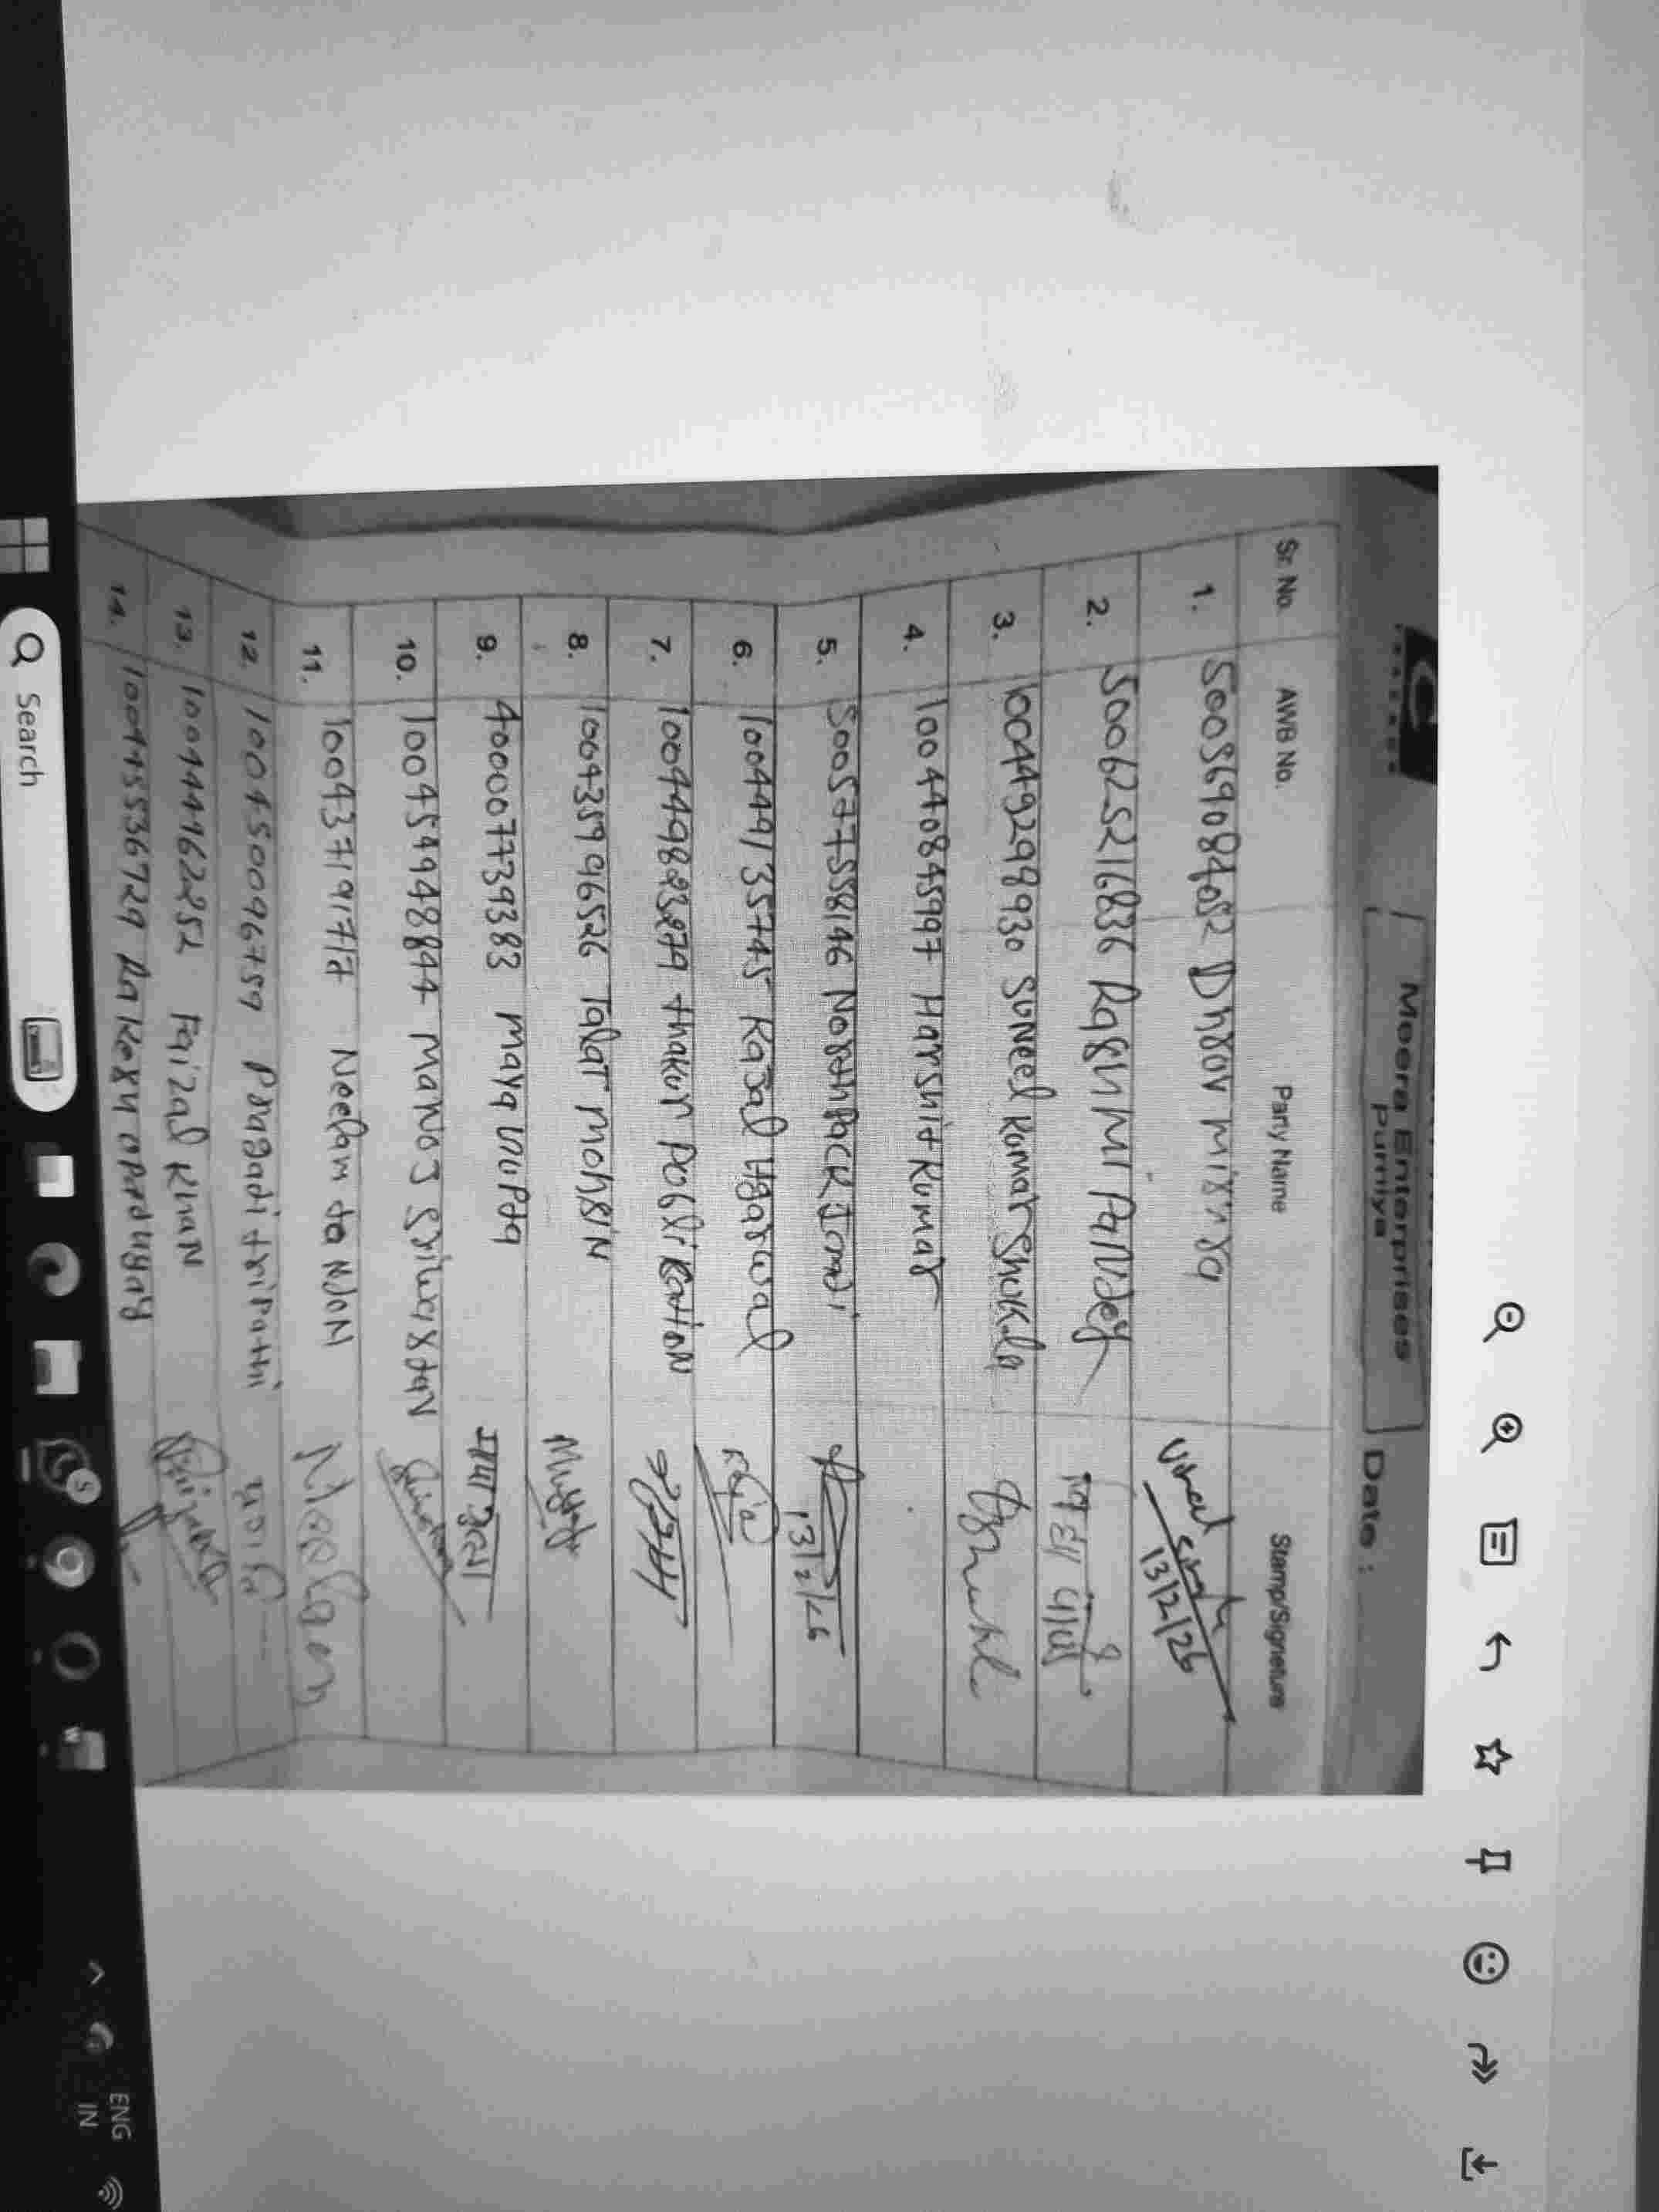 Meera Enterprises
Purniya
Date :
Sr. No. AWB No. Party Name Stamp/Signeture
1. 500569084052 Dhrov mishra 13/2/26
2. 500625216836 Rashmi Pandey
3. 10044929930 Suneel Kumar Shukla
4. 10044084597 Harshit Kumar
5. 500577558146 13/2/26
6. 100449135745 Kajal Agarwal
7. 100449823279 thakur Publication
8. 100435996526 Talat mohsin
9. 4000077739383 maya Gupta माया गुप्ता
10. 100454948894 Manoj
11. 10043719717 Neelam tandon Neelam
12. 100450096759 Pragadi tripathi
13. 100444962252 Faizal Khan
14. 100455536729 Rakesh
Search
ENG
IN